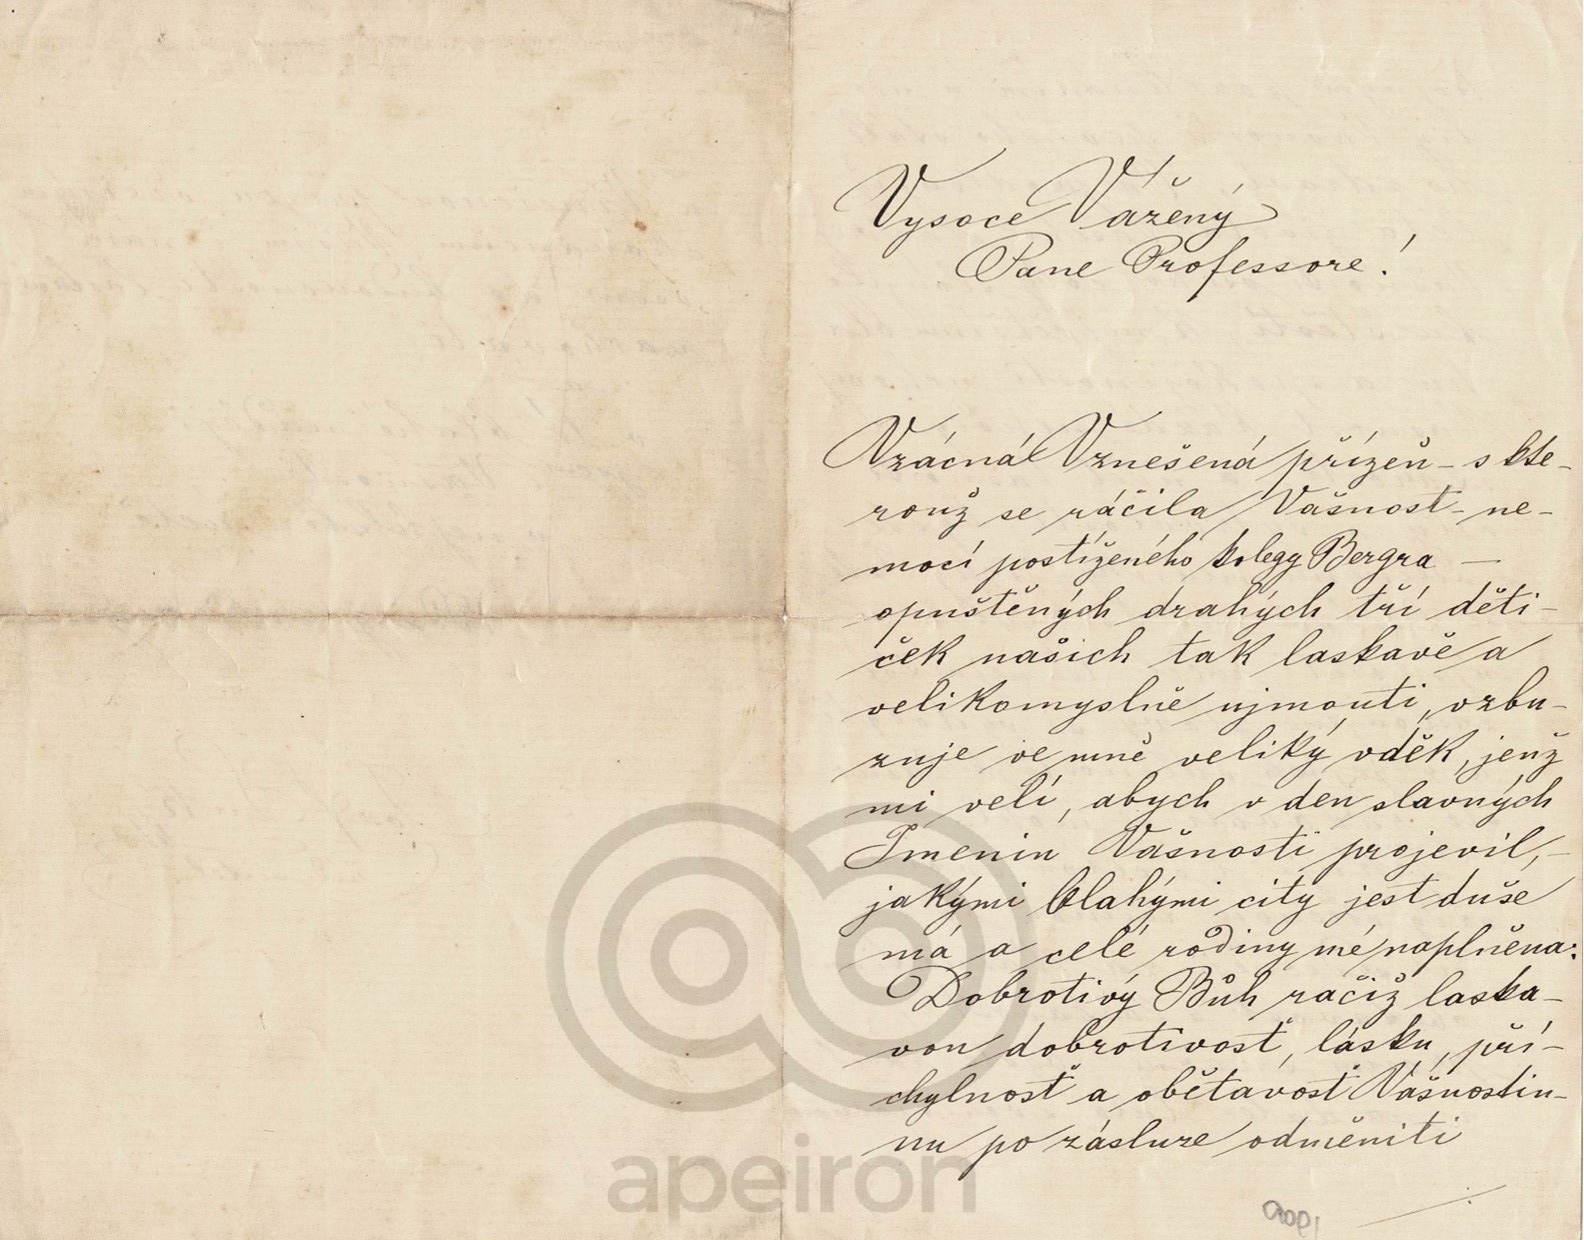 Vysoce Vážený
Pane Professore!
Vzácná Vznešená přízeň - s kte-
rouž se ráčila Vašnost - ne-
mocí postíženého kolegy Bergra —
opuštěných drahých tří děti-
ček našich tak laskavě a
velikomyslně ujmouti, vzbu-
zuje ve mně veliký vděk, jenž
mi velí, abych v den slavných
Jmenin Vašnosti projevil, -
jakými blahými city jest duše
má a celé rodiny mé naplněna:
Dobrotivý Bůh račiž laska-
vou dobrotivosť, lásku, pří-
chylnosť a obětavosť Vášnostin-
nu po zásluze odměniti
apeiron